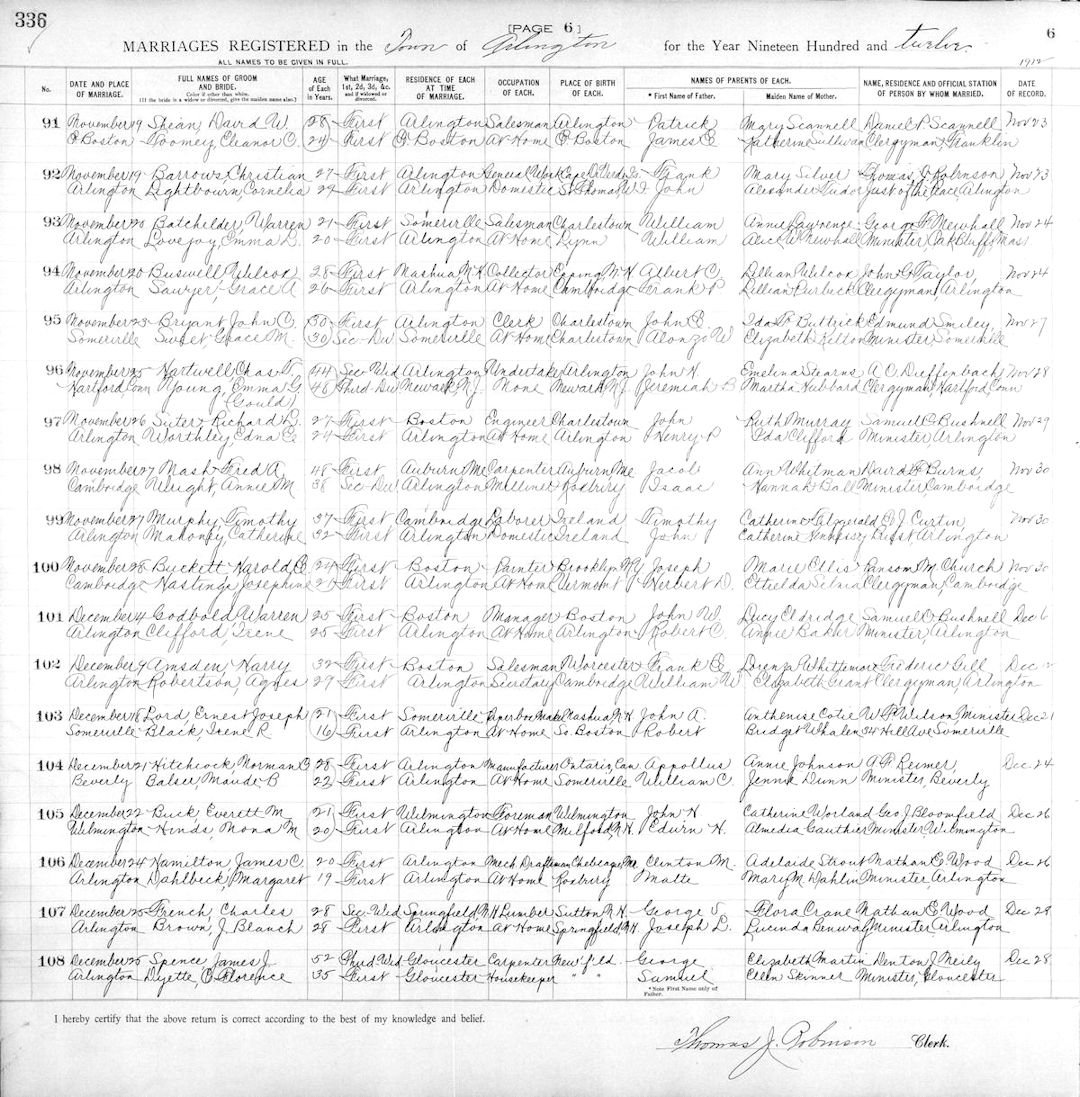 336
[PAGE 6]
6
MARRIAGES REGISTERED in the Town of Arlington for the Year Nineteen Hundred and twelve
ALL NAMES TO BE GIVEN IN FULL.
1912
No. DATE AND PLACE OF MARRIAGE. FULL NAMES OF GROOM AND BRIDE. Color if other than white. (If the bride is a widow or divorced, give the maiden name also.) AGE of Each in Years. What Marriage, 1st, 2d, 3d, &c. and if widowed or divorced. RESIDENCE OF EACH AT TIME OF MARRIAGE. OCCUPATION OF EACH. PLACE OF BIRTH OF EACH. NAMES OF PARENTS OF EACH. * First Name of Father. Maiden Name of Mother. NAME, RESIDENCE AND OFFICIAL STATION OF PERSON BY WHOM MARRIED. DATE OF RECORD.
91 November 19 Shean, David W. 28 First Arlington Salesman Arlington Patrick Mary Scannell Daniel P. Scannell Nov 23
E Boston Toomey Eleanor C. 24 First E Boston At Home E Boston James E Katherine Sullivan Clergyman, Franklin
92 November 19 Barrows Christian 27 First Arlington General Work Cape De Verde Is. Frank Mary Silver Thomas J. Robinson, Nov 23
Arlington Lightbourn, Cornelia 24 First Arlington Domestic St Thomas, W I John Alexander Tudor Just of the Peace, Arlington
93 November 20 Batchelder, Warren 21 First Somerville Salesman Charlestown William Annie Lawrence George F. Newhall Nov 24
Arlington Lovejoy, Emma L. 20 First Arlington At Home Lynn William Alice W. Newhall Minister, Oak Bluffs Mass
94 November 20 Buswell Wilcox 28 First Nashua N.H. Collector Epping N.H. Albert C. Lillian Wilcox John G Taylor, Nov 24
Arlington Sawyer, Grace A 26 First Arlington At Home Cambridge Frank P Lillian Purbeck Clergyman, Arlington
95 November 23 Bryant John C. 30 First Arlington Clerk Charlestown John E. Ida B Buttrick Edmund Smiley, Nov 27
Somerville Sweet Grace M. 30 Sec-Div Somerville At Home Charlestown Alonzo W Elizabeth Kelton Minister Somerville
96 November 25 Hartwell Chas T, 44 Sec Wid Arlington Undertaker Arlington John H Emelina Stearns A C Dieffenbach Nov 28
Hartford, Conn Young, Emma G 48 Third Div Newark, N.J. None Newark N.J. Jeremiah B Martha Hubbard Clergyman, Hartford, Conn
(Gould)
97 November 26 Suter Richard L. 27 First Boston Engineer Charlestown John Ruth Murray Samuel C. Bushnell Nov 29
Arlington Worthley Edna C 24 First Arlington At Home Arlington Henry P Ida Clifford Minister, Arlington
98 November 27 Nash Fred A 48 First Auburn, Me Carpenter Auburn Me Jacob Ann Whitman David F Burns Nov 30
Cambridge Wright, Annie M 38 Sec-Div Arlington Milliner Roxbury Isaac Hannah Ball Minister Cambridge
99 November 27 Murphy, Timothy 37 First Cambridge Laborer Ireland Timothy Catherine Fitzgerald E J Curtin, Nov 30
Arlington Mahoney Catherine 32 First Arlington Domestic Ireland John Catherine Hennessy Priest Arlington
100 November 28 Byckett Harold C. 24 First Boston Painter Brooklyn N.Y. Joseph Marie Ellis Ransom M Church Nov 30
Cambridge Hastings Josephine 20 First Arlington At Home Vermont Herbert D. Clergyman, Cambridge
101 December 4 Godbold Warren 25 First Boston Manager Boston John W. Lucy Eldridge Samuel C Bushnell Dec 6
Arlington Clifford, Irene 25 First Arlington At Home Arlington Robert C Annie Baker Minister, Arlington
102 December 9 Amsden Harry 32 First Boston Salesman Worcester Frank E Whittemore Frederic Gill Dec 12
Arlington Robertson, Agnes 29 First Arlington Secretary Cambridge William W Elizabeth Grant Clergyman, Arlington
103 December 18 Lord, Ernest Joseph 21 First Somerville Paperbox Maker Nashua N.H John A. Anthenise Cotie W F Wilson Minister Dec 21
Somerville Black, Irene R 16 First Arlington At Home So. Boston Robert Bridget Whalen 34 Hill Ave Somerville
104 December 21 Hitchcock, Norman C 28 First Arlington Manufacturer Ontario, Can Appollus Annie Johnson A F Reimer, Dec. 24
Beverly Balser, Maude B 22 First Arlington At Home Somerville William C. Jennie Dunn Minister, Beverly
105 December 22 Buck Everett M 21 First Wilmington Foreman Wilmington John H Catherine Worland Geo J. Bloomfield Dec 26
Wilmington Hinds Mona M 20 First Arlington At Home Milford, N.H. Edwin H. Almedia Gauthier Minister Wilmington
106 December 24 Hamilton James C. 20 First Arlington Mech Draftsman Chebeague, Me Clinton M. Adelaide Strout Nathan E Wood Dec 26
Arlington Dahlbeck, Margaret 19 First Arlington At Home Roxbury Malte Mary M Dahlin Minister, Arlington
107 December 25 French, Charles 28 Sec-Wid Springfield, N.H Lumber Sutton N H. George S. Flora Crane Nathan E Wood Dec 29
Arlington Brown, J Blanch 28 First Arlington At Home Springfield, N.H Joseph L. Lucinda Minister Arlington
108 December 25 Spence James J. 52 Third Wid Gloucester Carpenter New'f'ld George Elizabeth Martin Denton J Neily Dec 28
Arlington Dyette, C. Florence 35 First Gloucester Housekeeper " Samuel Ellen Skinner Minister, Gloucester
* Note First Name only of Father.
I hereby certify that the above return is correct according to the best of my knowledge and belief.
Thomas J. Robinson Clerk.